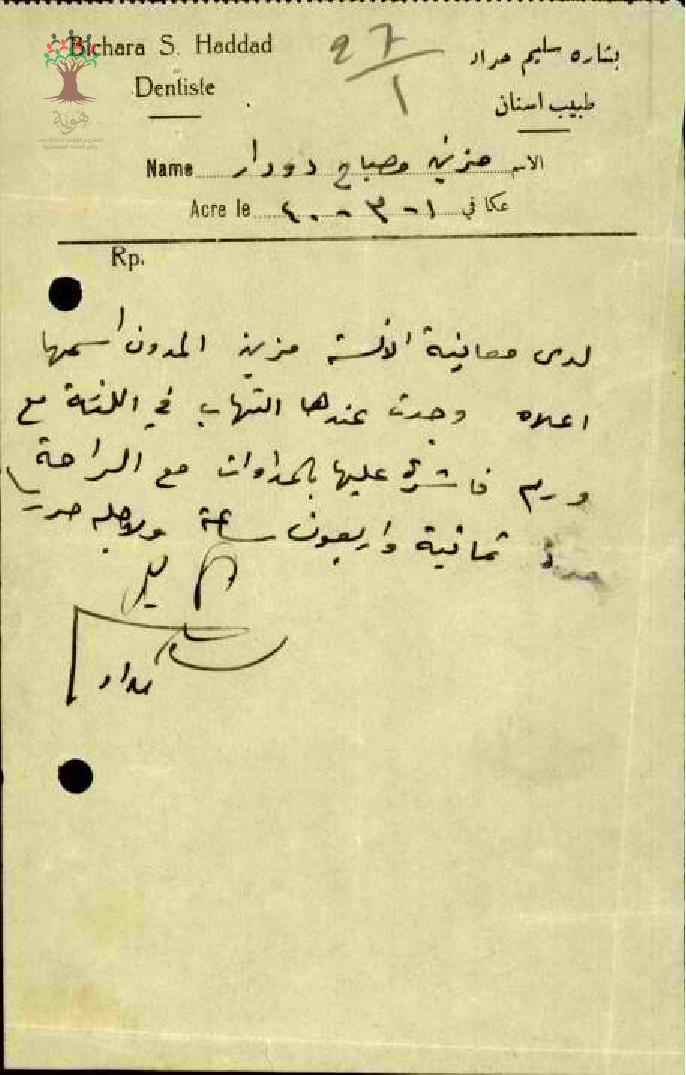 Bichara S. Haddad
Dentiste
بشاره سليم حداد
طبيب اسنان
27/1
هوية
Name مزين مصباح دودار الاسم
Acre le ٤٠-٣-١ عكا في
Rp.
لدى معاينة الآنسة مزين المدون اسمها
اعلاه وجدت عندها التهاب في اللثة مع
ورم فاشرة عليها بالمداوات مع الراحة
مدة ثمانية واربعون ساعة ولاجله حررت
حداد